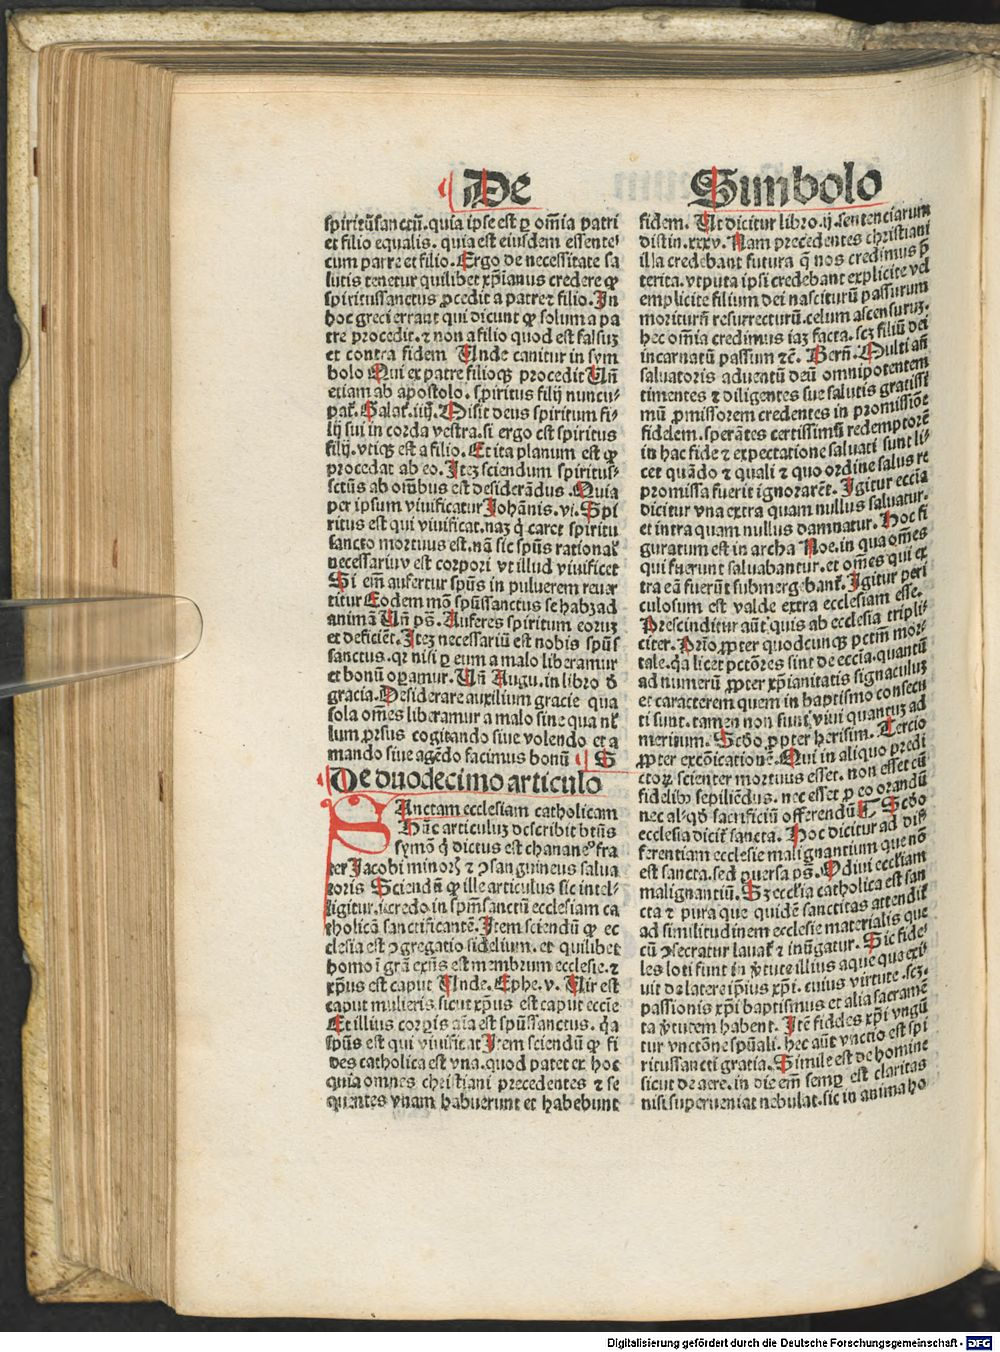 De
Simbolo
spiritūsanctū. quia ipse est ꝑ om̄ia patri
et filio equalis. quia est eiusdem essentei
cum patre et filio. Ergo de necessitate sa
lutis tenetur quilibet xp̄ianus credere ꝙ
spiritussanctus ꝓcedit a patre ⁊ filio. In
hoc greci errant qui dicunt ꝙ solum a pa
tre procedit. ⁊ non a filio quod est falsuꝫ
et contra fidem Unde canitur in sym
bolo Qui ex patre filioqꝫ procedit Un̄
etiam ab apostolo. spiritus filij nuncu-
pat̄. Galat̄. iiij. Misit deus spiritum fi-
lij sui in corda vestra. si ergo est spiritus
filij. vtiqꝫ est a filio. Et ita planum est ꝙ
procedat ab eo. Iteꝫ sciendum spiritus-
sctūs ab om̄ibus est desiderādus. Quia
per ipsum viuificatur Johānis. vi. Spi
ritus est qui viuificat. naꝫ q̄ caret spiritu
sancto mortuus est. nā sic spūs rational̄
necessariuꝫ est corpori vt illud viuificet
Si em̄ aufertur spūs in puluerem reuer
titur Eodem mō spūssanctus se habꝫ ad
animā Un̄ ps̄. Auferes spiritum eoruꝫ
et deficiēt. Iteꝫ necessariū est nobis spūs
sanctus. qr nisi ꝑ eum a malo liberamur
et bonū oꝑamur. Un̄ Augu. in libro d̄
gracia. Desiderare auxilium gracie qua
sola om̄es liberamur a malo sine qua nl̄
lum ꝓrsus cogitando siue volendo et a
mando siue agēdo facimus bonū S
De duodecimo articulo
SAnctam ecclesiam catholicam
Hūc articuluꝫ describit btūs
symon q̄ dictus est chananeꝰ fra
ter Jacobi minorꝭ ⁊ ꝯsanguineus salua
toris Sciendū ꝙ ille articulus sic intel-
ligitur. credo in spm̄sanctū ecclesiam ca
tholicā sanctificantē. Item sciendū ꝙ ec
clesia est ꝯgregatio fidelium. et quilibet
homo ī grā exn̄s est membrum ecclesie. ⁊
xp̄us est caput Unde. Ephe. v. Uir est
caput mulieris. sicut xp̄us est caput eccīe
Et illius corꝑis aīa est spūssanctus. q̄a
spūs est qui viuificat Item sciendū ꝙ fi
des catholica est vna. quod patet ex hoc
quia omnes christiani precedentes ⁊ se
quentes vnam habuerunt et habebunt
fidem. Ut dicitur libro. ij. sentenciarum
distin. xxxv. Nam precedentes christiani
illa credebant futura q̄ nos credimus p̄
terita. vtputa ipsi credebant explicite vel
emplicite filium dei nasciturū passurum
moriturū resurrecturū. celum ascensuruꝫ.
hec om̄ia credimus iaꝫ facta. scꝫ filiū dei
incarnatū passum ⁊c̄. Bern̄. Multi an̄
saluatoris aduentū deū omnipotentem
timentes ⁊ diligentes sue salutis gratissi
mū ꝓmissorem credentes in promissiōe
fidelem. sperātes certissimū redemptorē
in hac fide ⁊ expectatione saluati sunt li-
cet quādo ⁊ quali ⁊ quo ordine salus re
promissa fuerit ignorarēt. Igitur eccīa
dicitur vna extra quam nullus saluatur.
et intra quam nullus damnatur. Hoc fi
guratum est in archa Noe. in qua om̄es
qui fuerunt saluabantur. et om̄es qui ex
tra eā fuerūt submergebant̄. Igitur peri
culosum est valde extra ecclesiam esse.
Prescinditur aūt quis ab ecclesia tripli-
citer. Prīo ꝓpter quodcunqꝫ pctm̄ mor-
tale. q̄a licet pctōres sint de eccīa. quantū
ad numerū ꝓpter xp̄ianitatis signaculuꝫ
et caracterem quem in baptismo consecu
ti sunt. tamen non sunt viui quantuꝫ ad
meritum. Scd̄o ꝓpter herisim. Tercio
ꝓpter excōicationē. Qui in aliquo predi
ctoꝝ scienter mortuus esset. non esset cū
fidelibꝫ sepiliēdus. nec esset ꝓ eo orandū
nec al-qd̄ sacrificiū offerendū. Scd̄o
ecclesia dicit̄ sancta. Hoc dicitur ad dif
ferentiam ecclesie malignantium que nō
est sancta. sed ꝑuersa ps̄. Odiui eccīiam
malignantiū. Sꝫ eccīia catholica est san
cta ⁊ pura que quidē sanctitas attendit̄
ad similitudinem ecclesie materialis que
cū ꝯsecratur lauat̄ ⁊ inūgatur. Sic fide-
les loti sunt in v̄tute illius aque que exi-
uit de latere ip̄ius xp̄i. cuius virtute. scꝫ.
passionis xp̄i baptismus et alia sacramē
ta v̄tutem habent. Itē fiddes xp̄i vngū
tur vnctōne spūali. hec aūt vnctio est spi
ritussancti gratia. Simile est de homine
sicut de aere. in die em̄ semꝑ est claritas
nisi superueniat nebulat. sic in anima ho
Digitalisierung gefördert durch die Deutsche Forschungsgemeinschaft - DFG